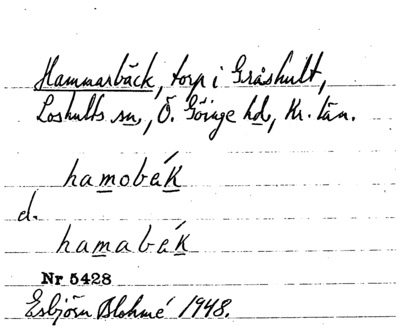 Hammarbäck, torp i Gråshult,
Loshults sn, Ö. Göinge hd, Kr. län.
hamobék
d.
hamabék
Nr 5428
Esbjörn Blohmé 1948.